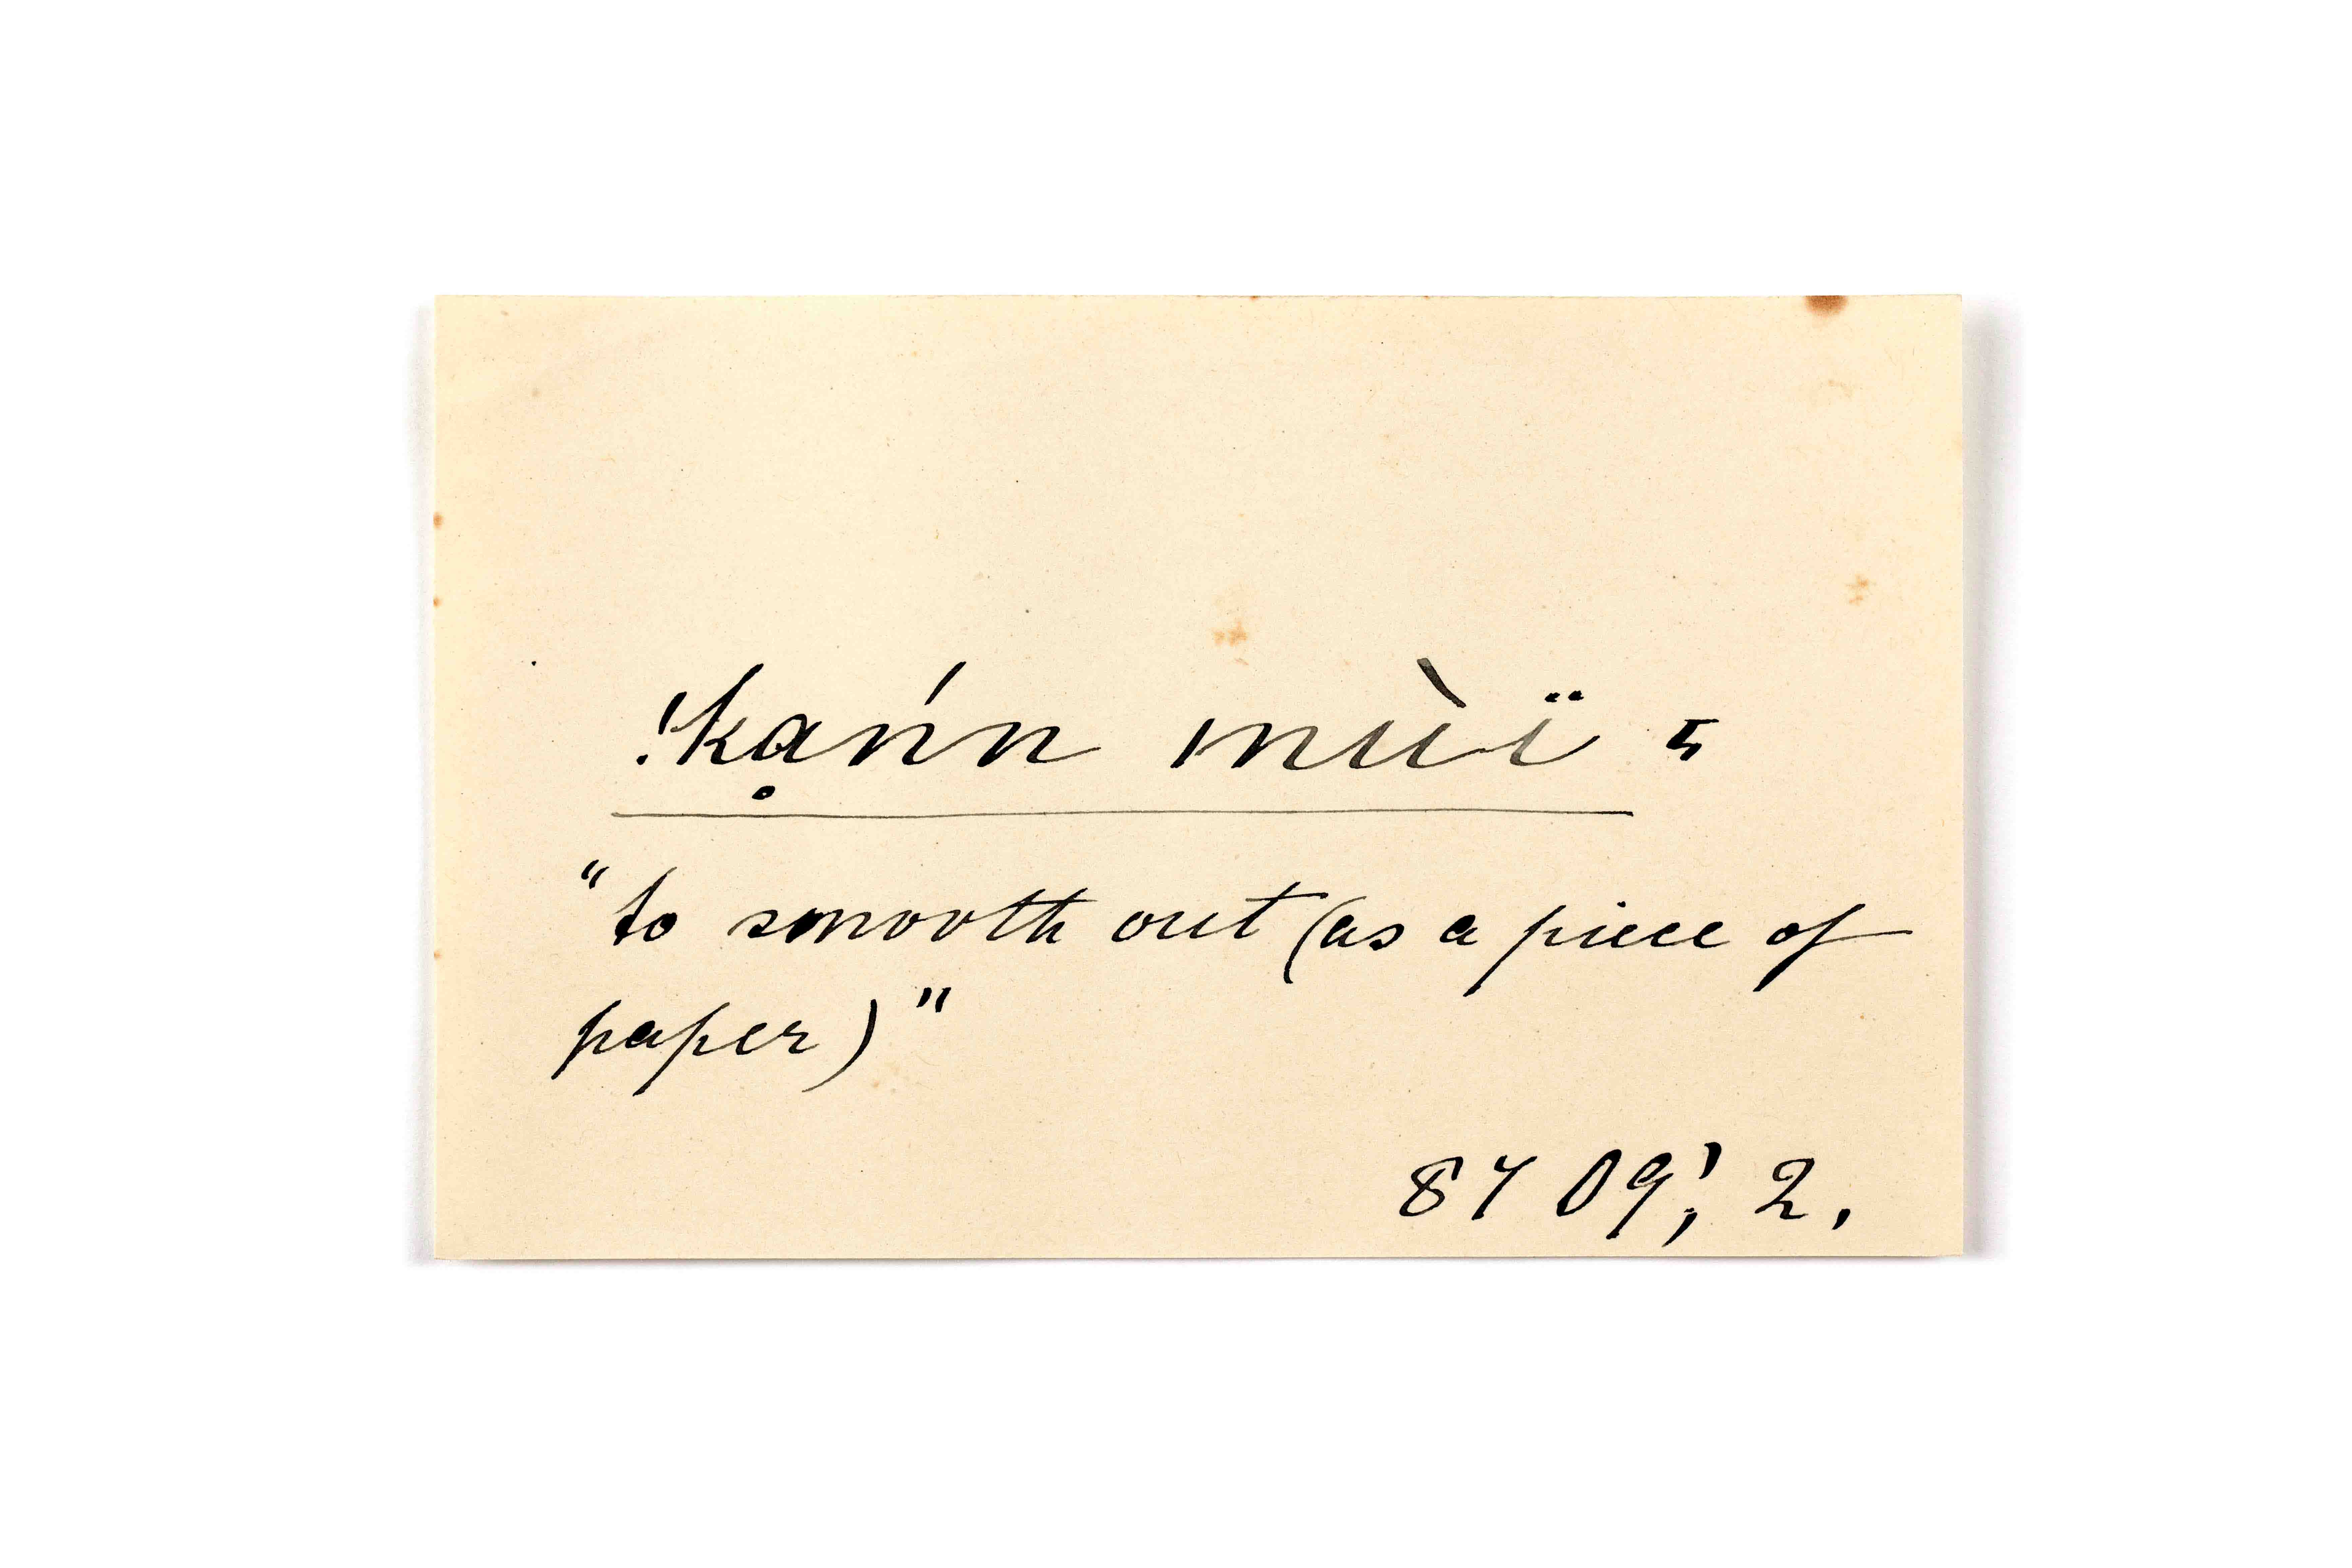 !kạńn mùï =
"to smooth out (as a piece of
paper)"
8709; 2.